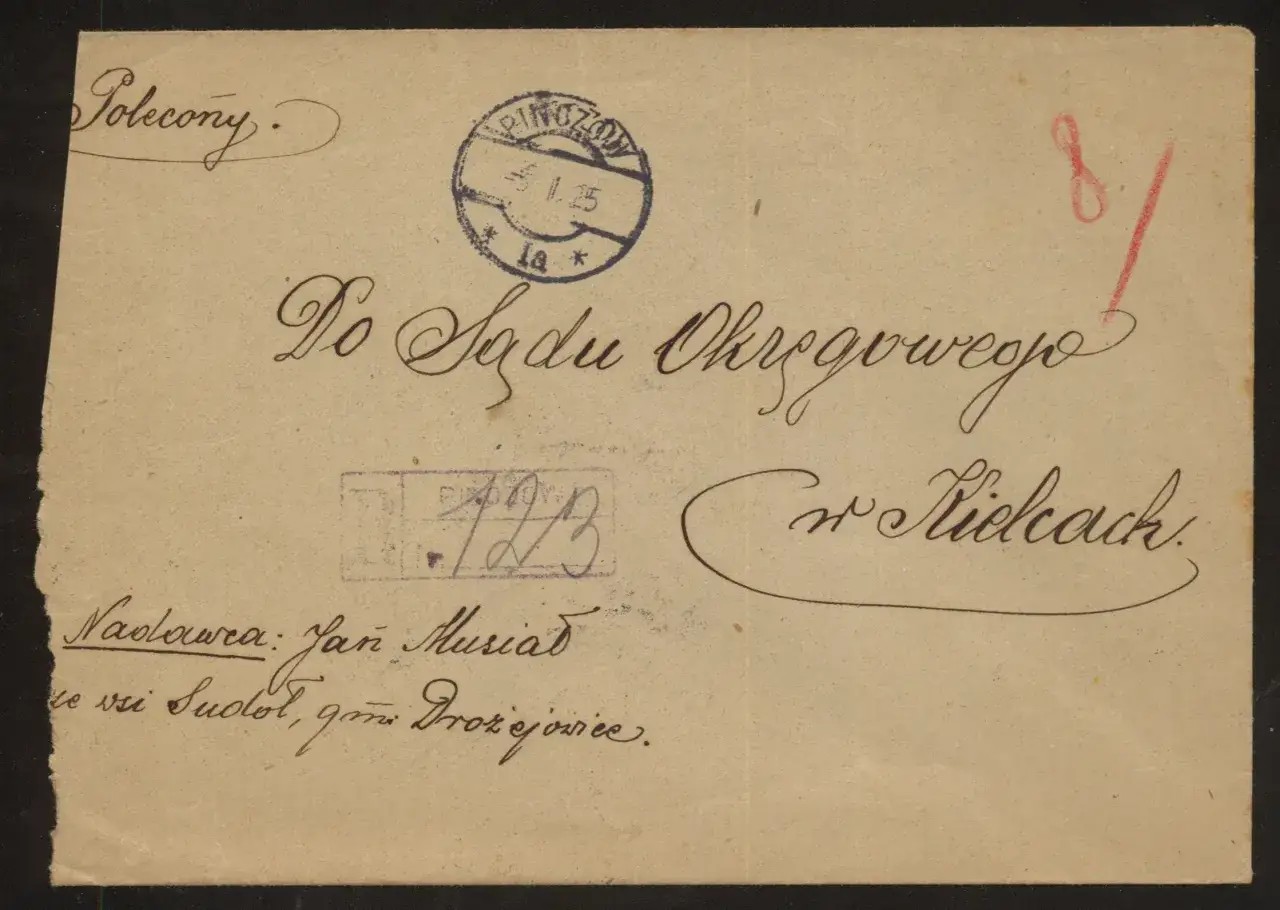 Polecony.
PIŃCZÓW
I. 25
* 1a *
8/
Do Sądu Okręgowego
w Kielcach.
R
123
Nadawca: Jań Musiał
ze wsi Sudoł, gm. Drożejowice.